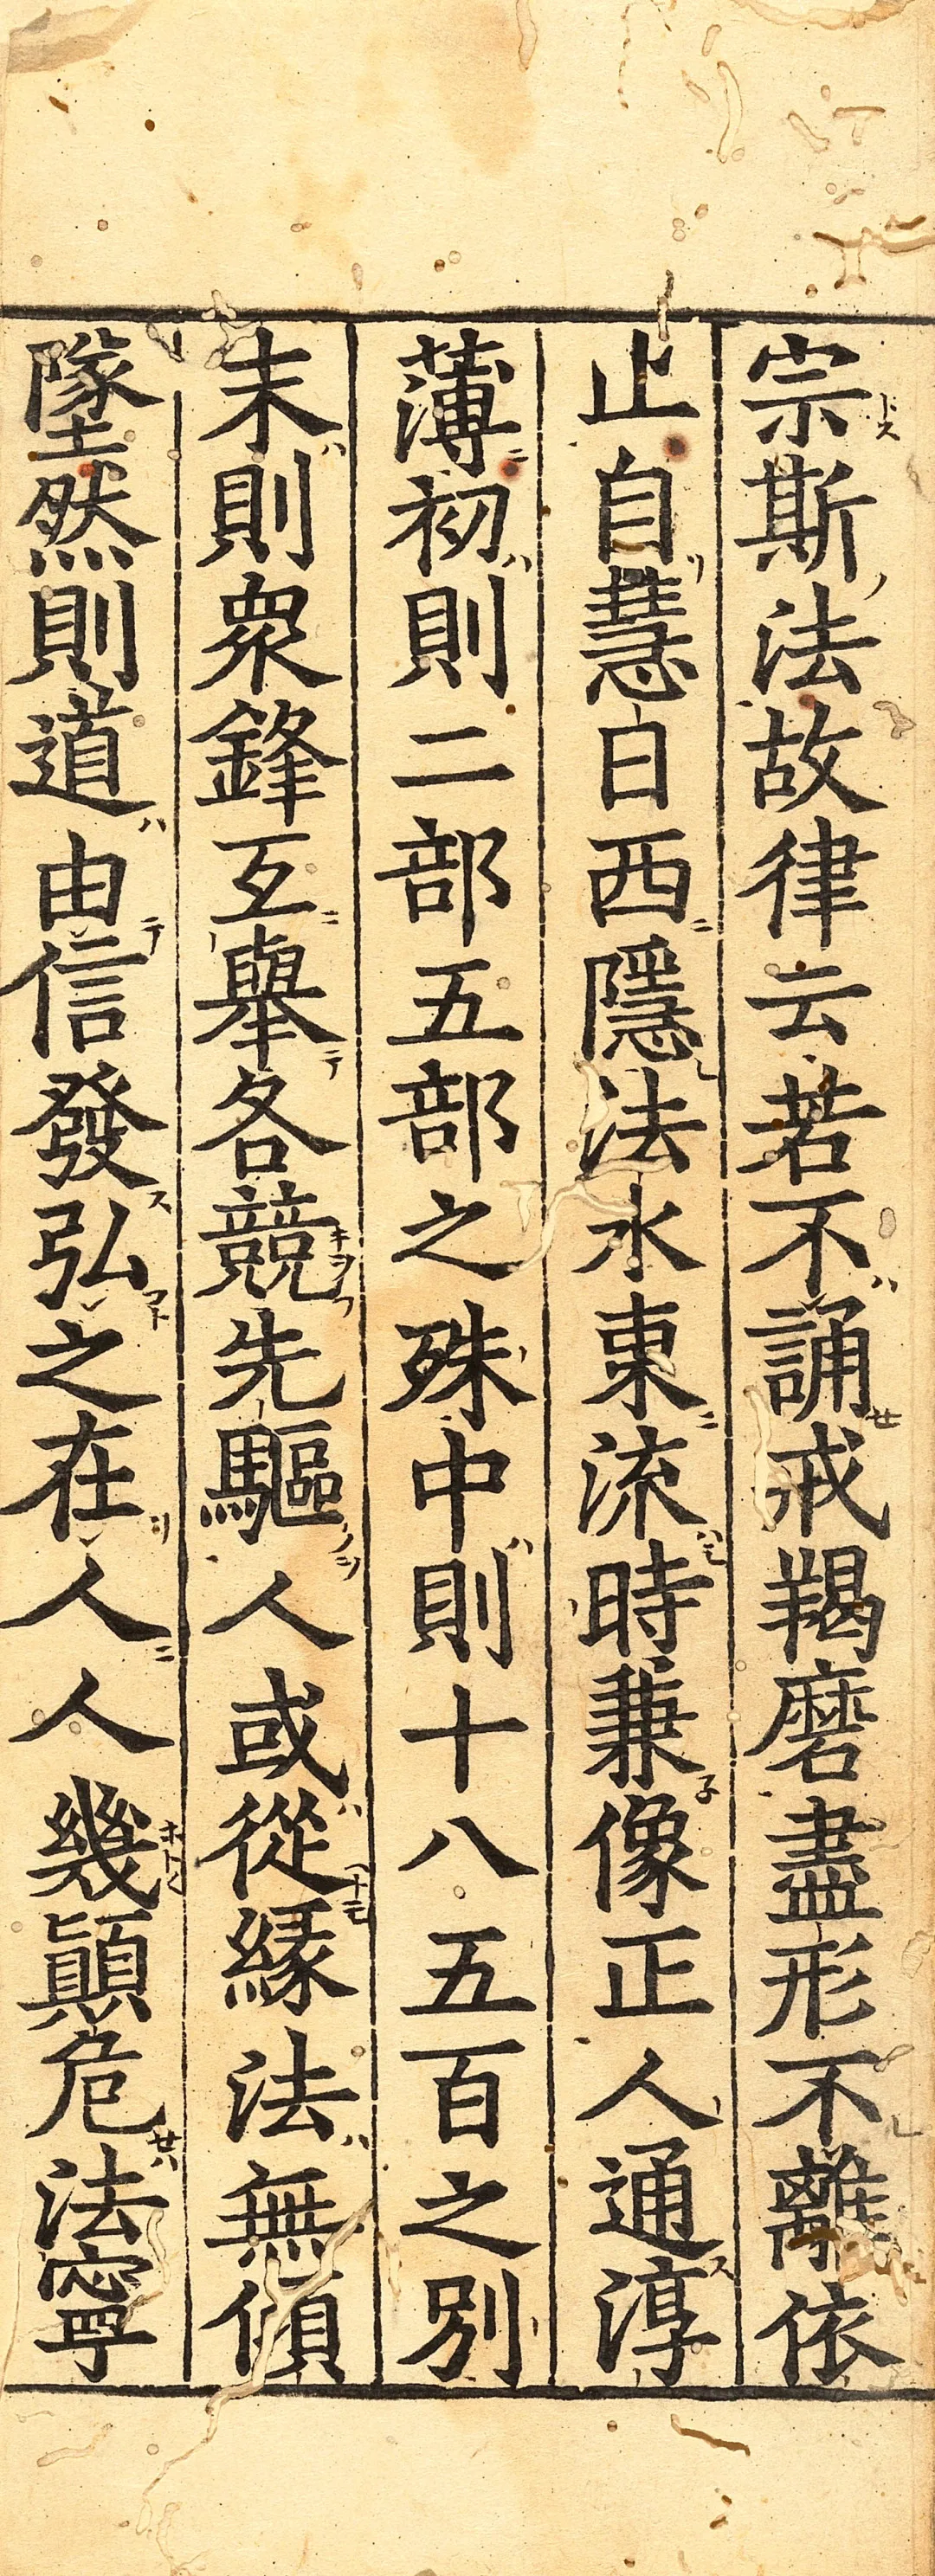 宗斯法故律云若不誦戒羯磨盡形不離依
止自慧日西隱法水東流時兼像正人通淳
薄初則二部五部之殊中則十八五百之別
末則衆鋒互擧各競先驅人或從緣法無傾
墜然則道由信發弘之在人人幾顚危法寧